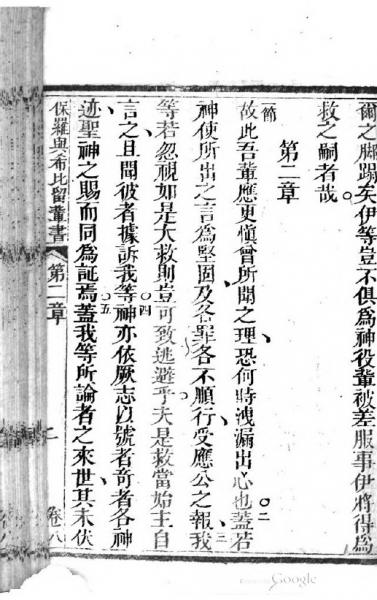 爾之腳蹋矣伊等豈不俱為神役輩被差服事伊將得為
救之嗣者哉
第二章
節
故此吾輩應更慎曾所聞之理恐何時洩漏出心也蓋若
二
神使所出之言為堅固及各罪各不順行受應公之報我
三
等若忽視如是大救則豈可致逃避乎夫是救當始主自
四
言之且聞彼者據訴我等神亦依厥志以號者奇者各神
五
迹聖神之賜而同為証焉蓋我等所論者之來世其未伏
保羅與希比留輩書
第二章
二
卷八
Google